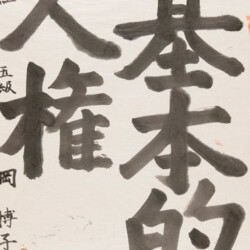 基本的
人権
五級 岡 博子